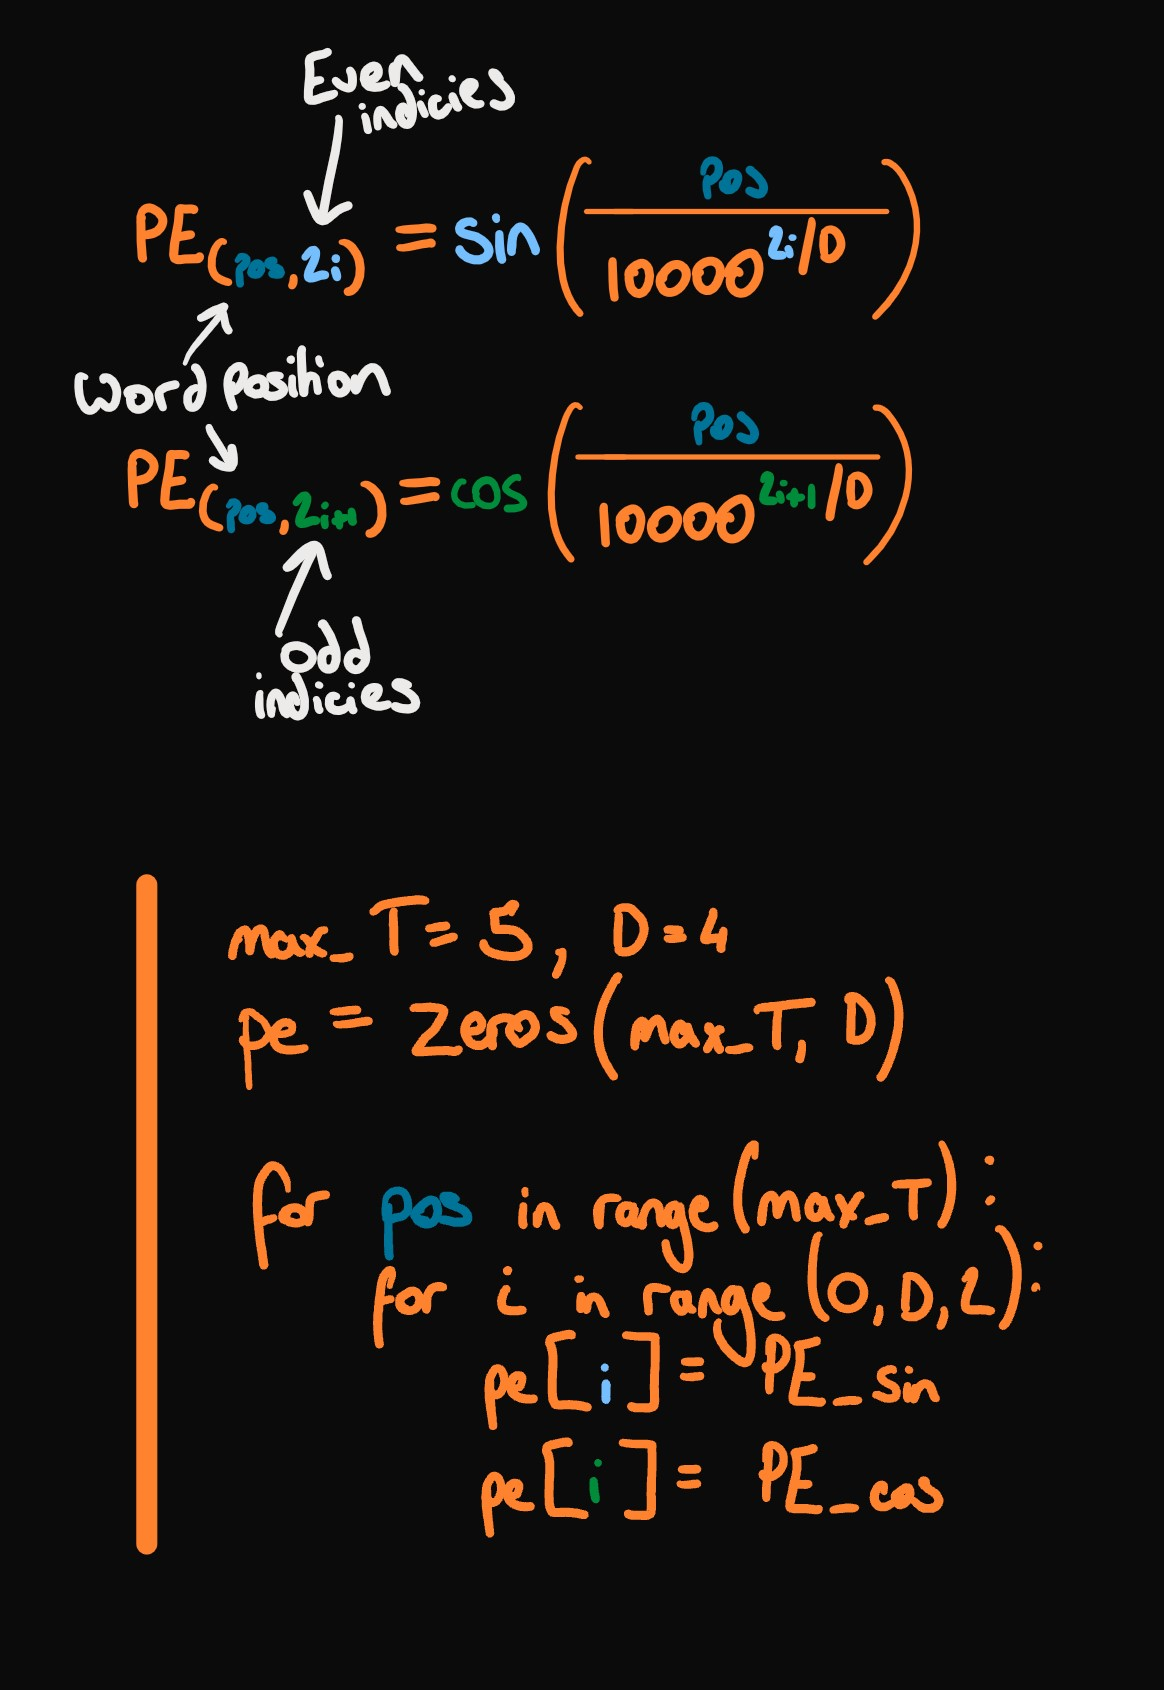 Even
indicies
PE(pos,2i) = sin(pos/10000^2i/D)
word position
PE(pos,2i+1) = cos(pos/10000^2i+1/D)
odd
indicies
max_T= 5, D=4
pe = zeros(max_T, D)
for pos in range(max_T):
for i in range(0,D,2):
pe[i]= PE_sin
pe[i]= PE_cos